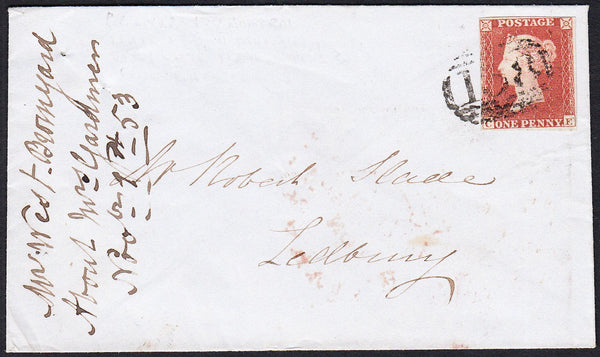 POSTAGE
ONE PENNY
C E
Mr Robert Slade
Ledbury
Mr West. Bromyard
About Mrs Gardner
53